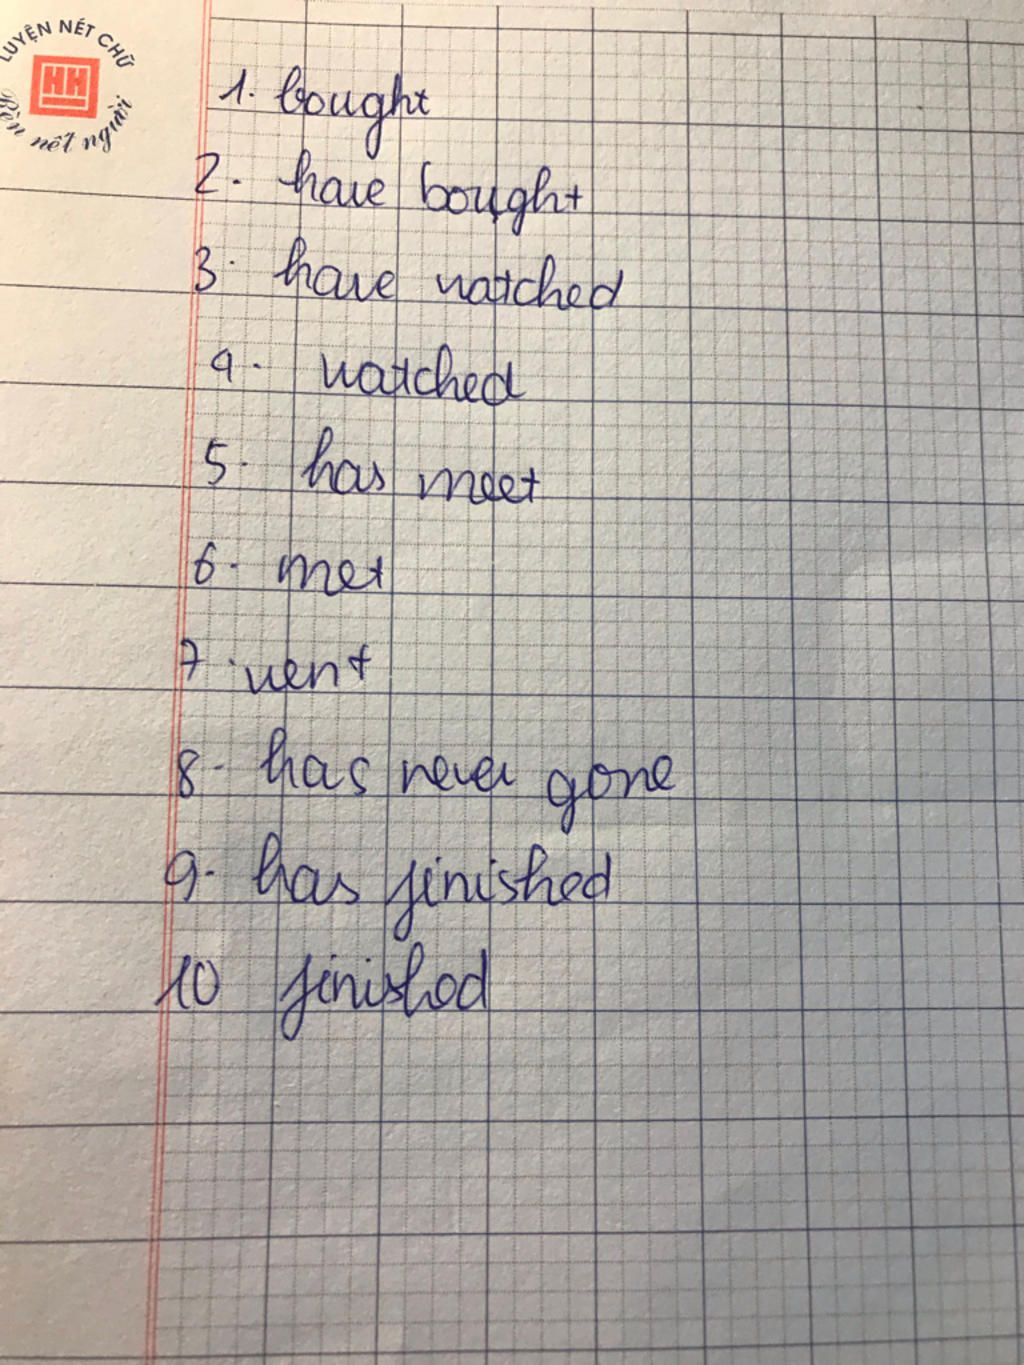 LUYỆN NÉT CHỮ
HH
Rèn nết người
1. bought
2. have bought
3. have watched
4. watched
5. has meet
6. met
7. went
8. has never gone
9. has finished
10 finished